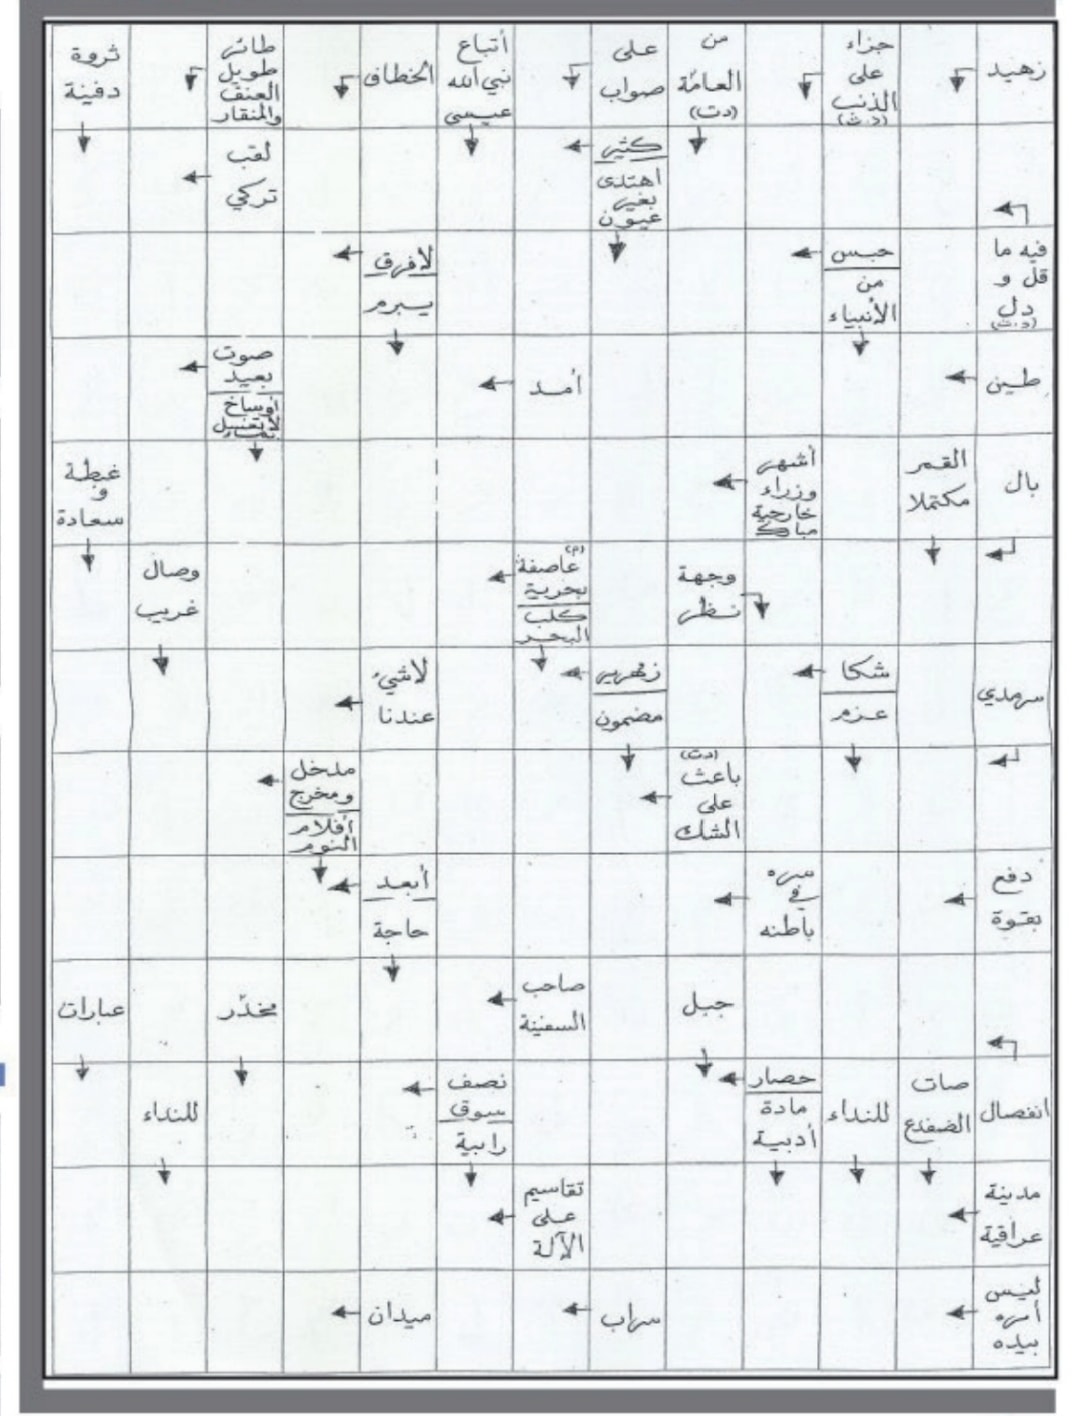 زهيد
جزاء
على
الذنب
(د.ت)
من
العامة
(دت)
على
صواب
أتباع
نبي الله
عيسى
الخطاف
طائر
طويل
العنق
والمنقار
ثروة
دفينة
كثير
اهتدى
بغير
عيون
لقب
تركي
فيه ما
قل و
دل
(د.ت)
حبس
من
الأنبياء
لافرق
يبرم
طين
أمد
صوت
بعيد
أوساخ
لاتغسل
بماء
بال
القمر
مكتملا
أشهر
وزراء
خارجية
مبارك
غبطة
و
سعادة
وجهة
نظر
(م)
عاصفة
بحرية
كلب
البحر
وصال
غريب
سرمدي
شكا
عزم
زمهرير
مضمون
لاشيء
عندنا
(دت)
باعث
على
الشك
مدخل
ومخرج
أفلام
النوم
دفع
بقوة
سره
في
باطنه
أبعد
حاجة
جبل
صاحب
السفينة
مخدّر
عبارات
انفصال
صات
الضفدع
للنداء
حصار
مادة
أدبية
نصف
سوق
رابية
للنداء
مدينة
عراقية
تقاسيم
على
الآلة
ليس
أمره
بيده
سراب
ميدان